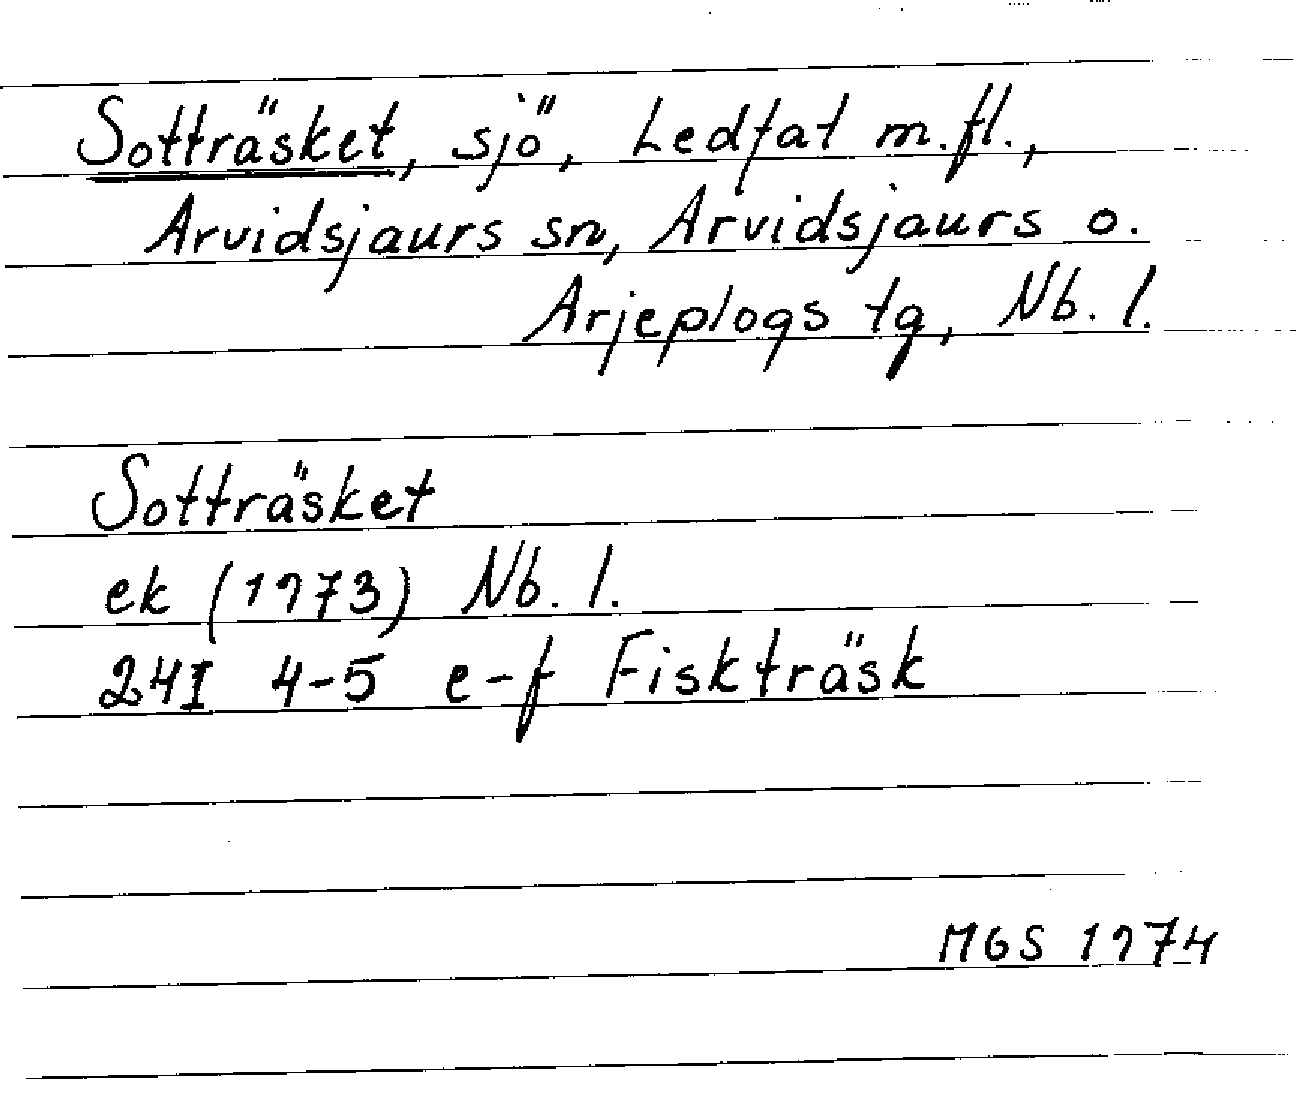 Sotträsket, sjö, Ledfat m.fl.,
Arvidsjaurs sn, Arvidsjaurs o.
Arjeplogs tg, Nb. l.
Sotträsket
ek (1973) Nb. l.
24I 4-5 e-f Fiskträsk
MGS 1974